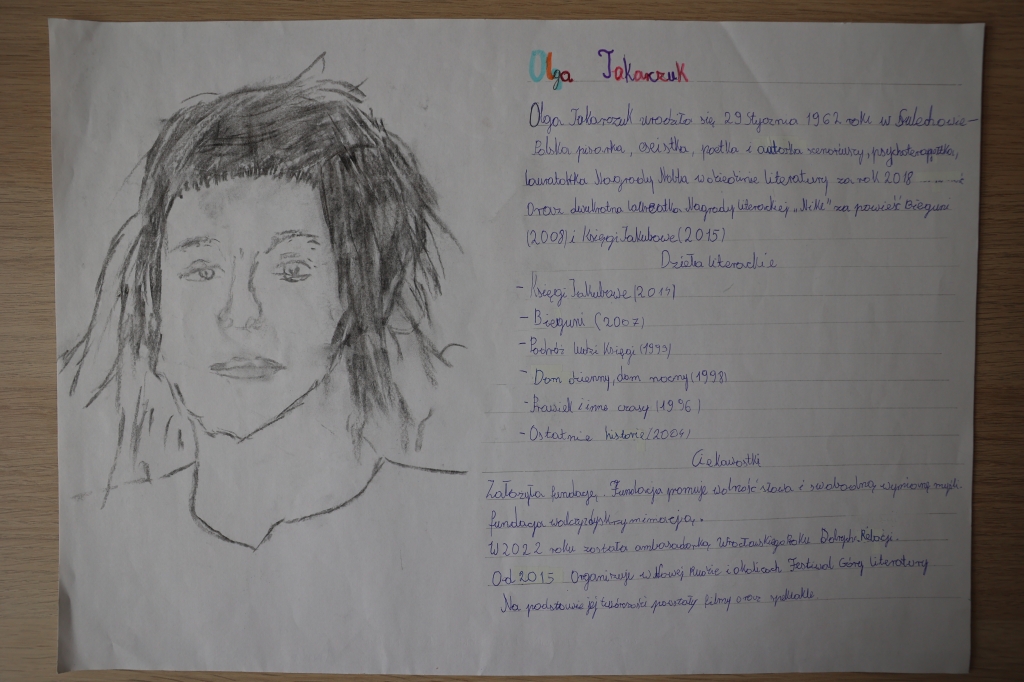 Olga Tokarczuk
Olga Tokarczuk urodziła się 29 stycznia 1962 roku w Sulechowie-
Polska pisarka, eseistka, poetka i autorka scenariuszy, psychoterapeutka,
laureatka Nagrody Nobla w dziedzinie literatury za rok 2018 i
oraz dwukrotna laureatka Nagrody literackiej „Nike" za powieść Bieguni
(2008) i Księgi Jakubowe (2015)
Dzieła literackie
- Księgi Jakubowe (2014)
- Bieguni (2007)
- Podróż ludzi Księgi (1993)
- Dom dzienny, dom nocny (1998)
- Prawiek i inne czasy (1996)
- Ostatnie historie (2004)
Ciekawostki
Założyła fundację. Fundacja promuje wolność słowa i swobodną wymianę myśli
fundacja walczy z dyskryminacją.
W 2022 roku została ambasadorką Wrocławskiego Roku Dobrych Relacji.
Od 2015 Organizuje w Nowej Rudzie i okolicach Festiwal Góry Literatury
Na podstawie jej twórczości powstały filmy oraz spektakle